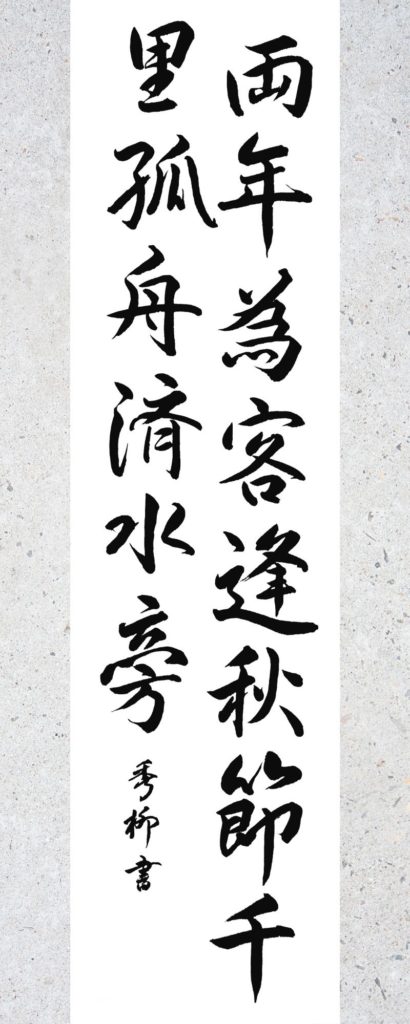 両年為客逢秋節千
里孤舟済水旁
秀柳書